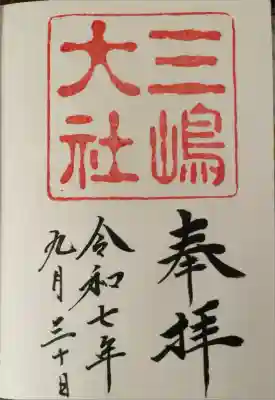 三嶋
大社
奉拝
令和七年
九月三十日